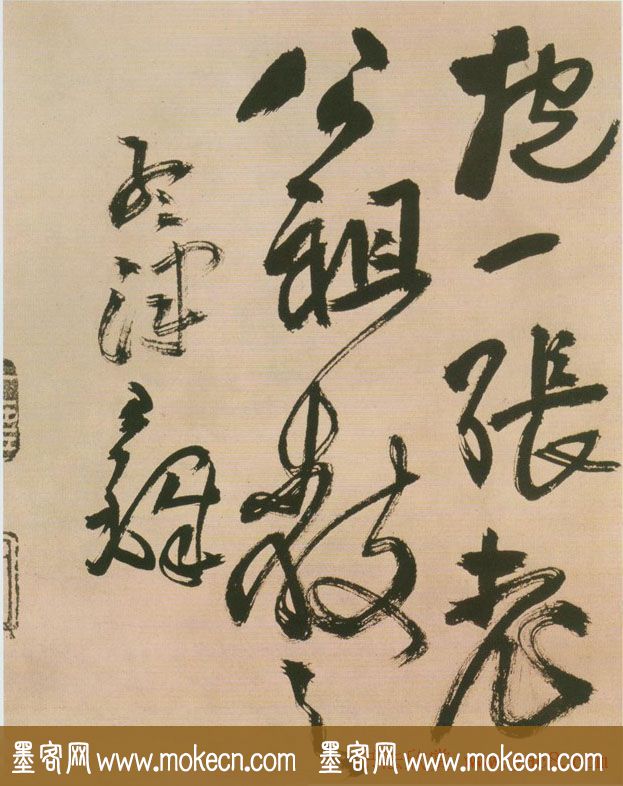 抱一張老
公祖教之
孟津王鐸
墨客网 www.mokecn.com 墨客网 www.mokecn.com